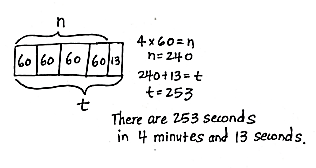 n
60 60 60 60 13
t
4 x 60 = n
n = 240
240 + 13 = t
t = 253
There are 253 seconds
in 4 minutes and 13 seconds.